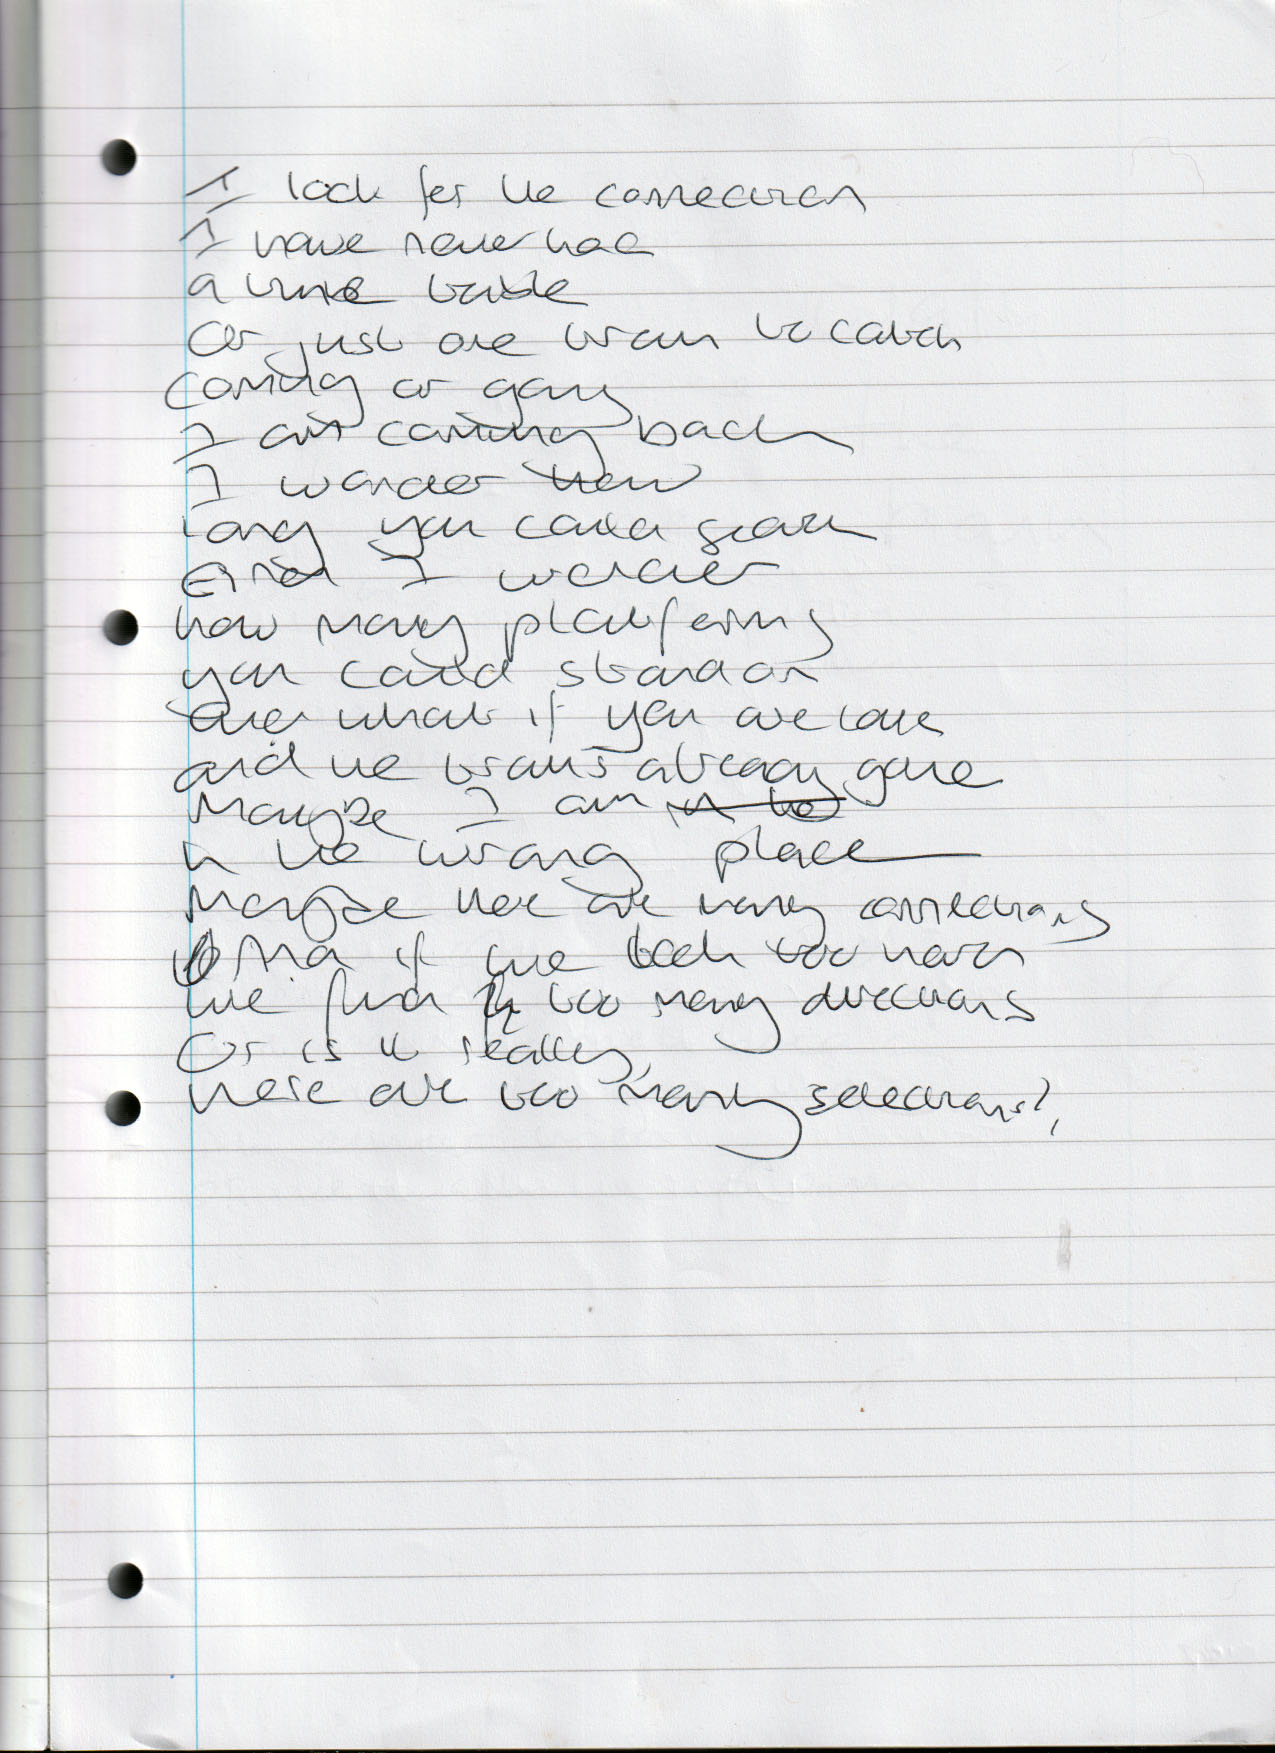 I look for the connection
I have never had
a time table
Or just one train to catch
Coming or going
I am coming back
I wonder how
long you could search
And I wonder
how many platforms
you could stand on
and what if you are late
and the train's already gone
Maybe I am
in the wrong place
Maybe there are many connections
And if we look too hard
we find too many directions
Or is it really,
there are too many selections?,